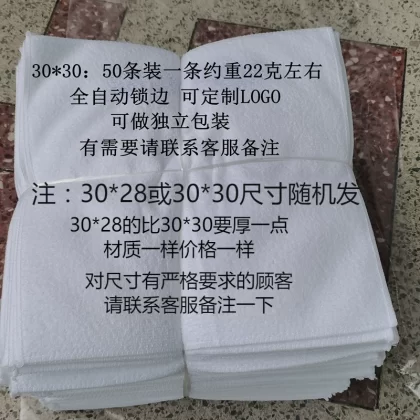 30*30：50条装一条约重22克左右
全自动锁边 可定制LOGO
可做独立包装
有需要请联系客服备注
注：30*28或30*30尺寸随机发
30*28的比30*30要厚一点
材质一样价格一样
对尺寸有严格要求的顾客
请联系客服备注一下